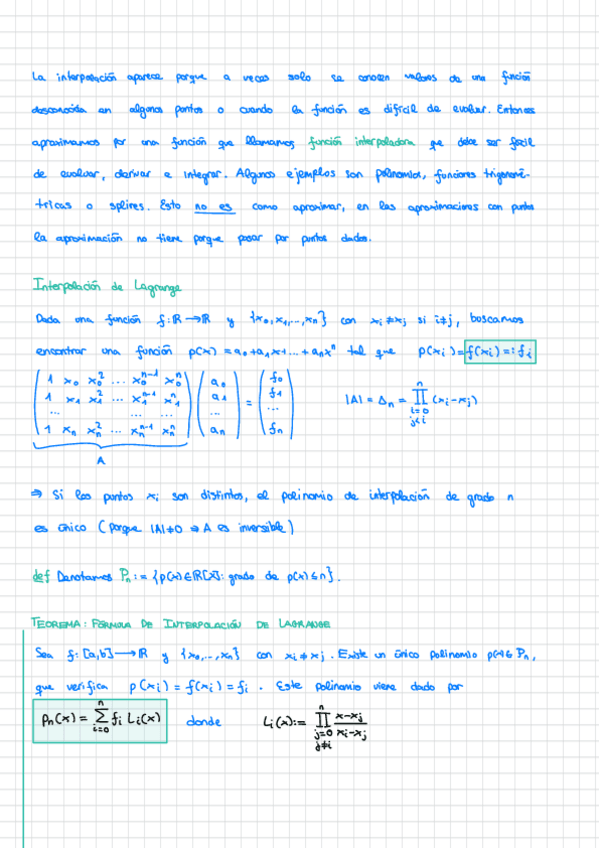 La interpolación aparece porque a veces solo se conocen valores de una función
desconocida en algunos puntos o cuando la función es difícil de evaluar. Entonces
aproximamos por una función que llamamos función interpoladora que debe ser fácil
de evaluar, derivar e integrar. Algunos ejemplos son polinomios, funciones trigonomé-
tricas o splines. Esto no es como aproximar, en las aproximaciones con puntos
la aproximación no tiene porque pasar por puntos dados.
Interpolación de Lagrange
Dada una función f: ℝ → ℝ y {x₀, x₁, ..., xₙ} con xᵢ ≠ xⱼ si i≠j, buscamos
encontrar una función p(x) = a₀ + a₁x + ... + aₙxⁿ tal que p(xᵢ) = f(xᵢ) =: fᵢ
( 1 x₀ x₀² ... x₀ⁿ⁻¹ x₀ⁿ ) ( a₀ ) ( f₀ )
( 1 x₁ x₁² ... x₁ⁿ⁻¹ x₁ⁿ ) ( a₁ ) = ( f₁ ) |A| = Δₙ = ∏ⁿ i=0 j<i (xᵢ - xⱼ)
( ... ... ... ) ( ... ) ( ... )
( 1 xₙ xₙ² ... xₙⁿ⁻¹ xₙⁿ ) ( aₙ ) ( fₙ )
A
⇒ Si los puntos xᵢ son distintos, el polinomio de interpolación de grado n
es único (porque |A|≠0 ⇒ A es inversible)
def Denotamos Pₙ := {p(x) ∈ ℝ[x]: grado de p(x) ≤ n}.
TEOREMA: FÓRMULA DE INTERPOLACIÓN DE LAGRANGE
Sea f: [a,b] → ℝ y {x₀, ..., xₙ} con xᵢ ≠ xⱼ. Existe un único polinomio p(x) ∈ Pₙ,
que verifica p(xᵢ) = f(xᵢ) = fᵢ. Este polinomio viene dado por
pₙ(x) = ∑ⁿ i=0 fᵢ Lᵢ(x) donde Lᵢ(x) := ∏ⁿ j=0 j≠i (x-xⱼ)/(xᵢ-xⱼ)